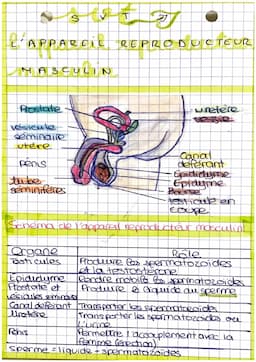 SVT
L'APPAREIL REPRODUCTEUR
MASCULIN
Prostate
vésicule
séminaire
utère
Pénis
tube
séminifères
uretère
vessie
Canal
déférant
Epididyme
Epididyme
Bourse
testicule en
coupe
Schéma de l'appareil reproducteur masculin
Organe Rôle
Testicules Produire les spermatozoïdes
et la testostérone
Epididyme Rendre mobile les spermatozoïdes
Prostate et Produire le liquide du sperme
vésicules séminales
Canal déférant Transporter les spermatozoïdes
Urètère Transporter les spermatozoïdes ou
l'urine
Pénis Permettre l'accouplement avec la
femme (érection)
sperme = liquide + spermatozoïdes